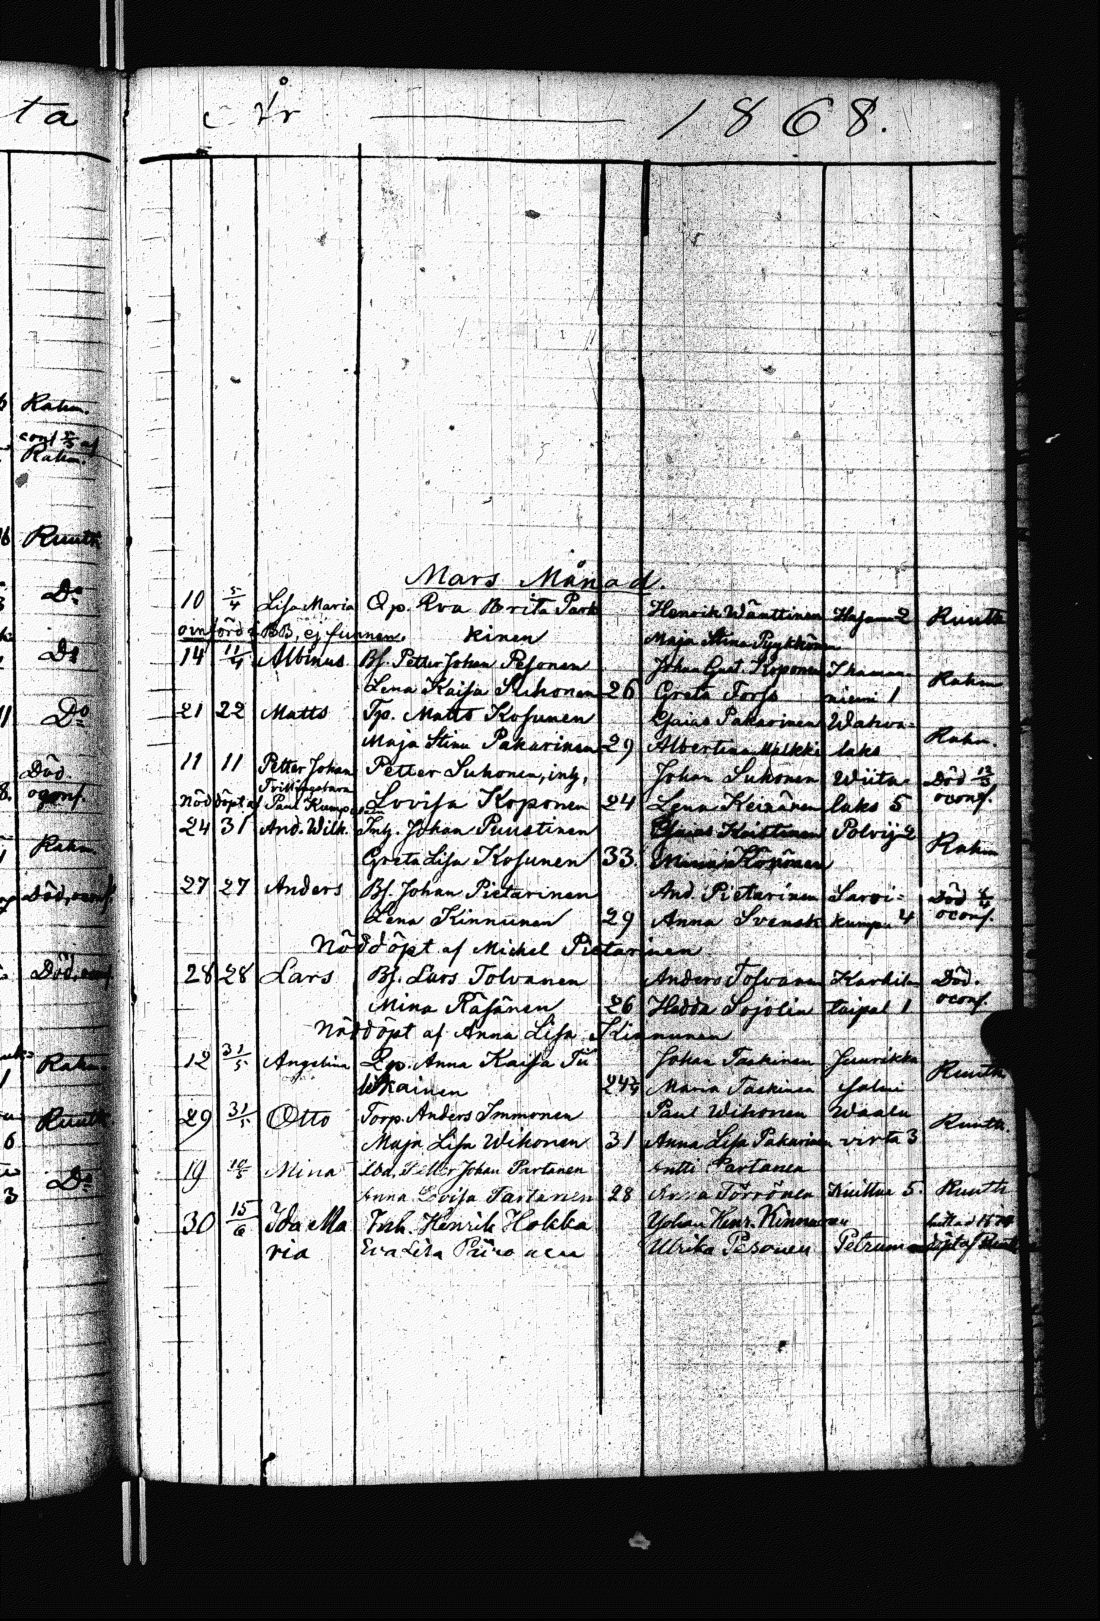 ta År 1868.
Rahm.
conf af
Rahm.
Ruuth
Do
Do
Do
Död.
oconf.
Rahm
Död, oconf.
Död, oconf.
Rahm.
Ruuth
Do
Mars Månad.
10 5/4 Lisa Maria Qp. Eva Brita Park Henrik Wänttinen 2 Ruuth
BB, ej funnen. kinen Maja Stina Pyykkönen
14 11/4 Albinus Bf. Petter Johan Pesonen Johan Gust. Koponen Ihaman- Rahm
Lena Kaisa Suhonen 26 Greta Forss niemi 1
21 22 Matts Tp. Matts Kosunen Esaias Pakarinen Watwa- Rahm.
Maja Stina Pakarinen 29 Albertina laks
11 11 Petter Johan Petter Suhonen, inh, Johan Suhonen Wiita- Död 12/3
Tvillingebarn
Nöddöpt af Paul Lovisa Koponen 24 Lena Keinänen laks 5 oconf.
24 31 And. Wilh. Inh. Johan Puustinen Esaias Koistinen Polvij. 2 Rahm
Greta Lisa Kosunen 33. Koponen
27 27 Anders Bf. Johan Pietarinen And. Pietarinen Sarvi- Död
Lena Kinnunen 29 Anna Svensk kumpu 4 oconf.
Nöddöpt af Michel Pietarinen
28 28 Lars Bf. Lars Tolvanen Anders Tolvanen Död.
Mina Räsänen 26 Hedda Sojolin taipal 1 oconf.
Nöddöpt af Anna Lisa Kinnunen
12 31/5 Angelina Qp. Anna Kaisa Tii Johan Taskinen Juurikka Ruuth
24 Maria Taskinen salmi
29 31/5 Otto Torp. Anders Immonen Paul Wihonen Waalu Ruuth.
Maja Lisa Wihonen 31 Anna Lisa Pakarinen virta 3
19 10/5 Mina Petter Johan Partanen Antti Partanen
Anna Lovisa Tartanen 28 Anna Törrönen 5. Ruuth
30 15/6 Ida Ma Inh. Henrik Hokka Johan Henr. Kinnunen
ria Eva Lisa Piiroinen Ulrika Pesonen Petrum döpt af Ruuth